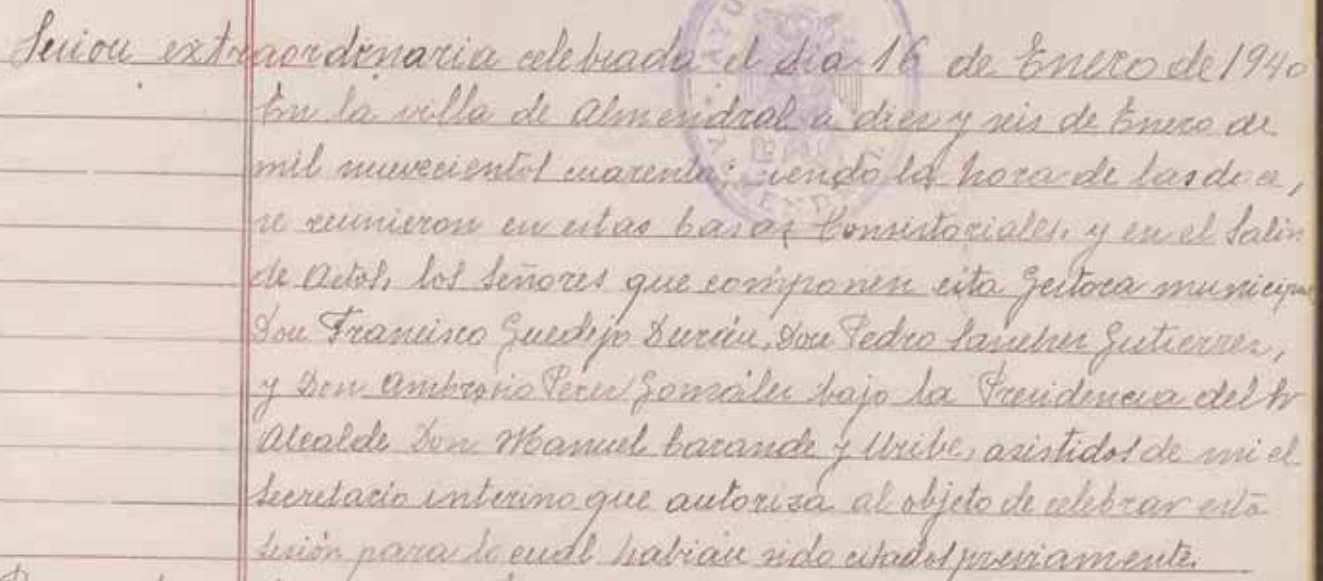 Sesion extraordinaria celebrada el dia 16 de Enero de 1940
En la villa de Almendral a diez y seis de Enero de
mil nuevecientos cuarenta; siendo la hora de las doce,
se reunieron en estas Casas Consistoriales, y en el Salón
de Actos, los Señores que componen esta Gestora municipal
Don Francisco Guedejo Durán, Don Pedro Sanchez Gutierrez,
y Don Ambrosio Perez González bajo la Presidencia del Sr
Alcalde Don Manuel Carande y Uribe, asistidos de mi el
Secretario interino que autoriza al objeto de celebrar esta
sesión para lo cual habian sido citados previamente.